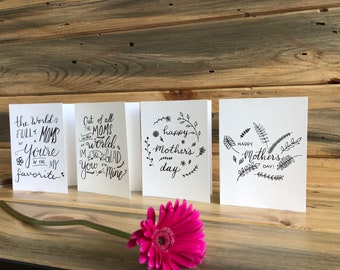 the World is
FULL of MOMS
but
You're
my
favorite
Out of all
the MOMS
in the
world
I'M so GLAD
you are
Mine!
happy
mother's
day
HAPPY
Mother's
DAY!